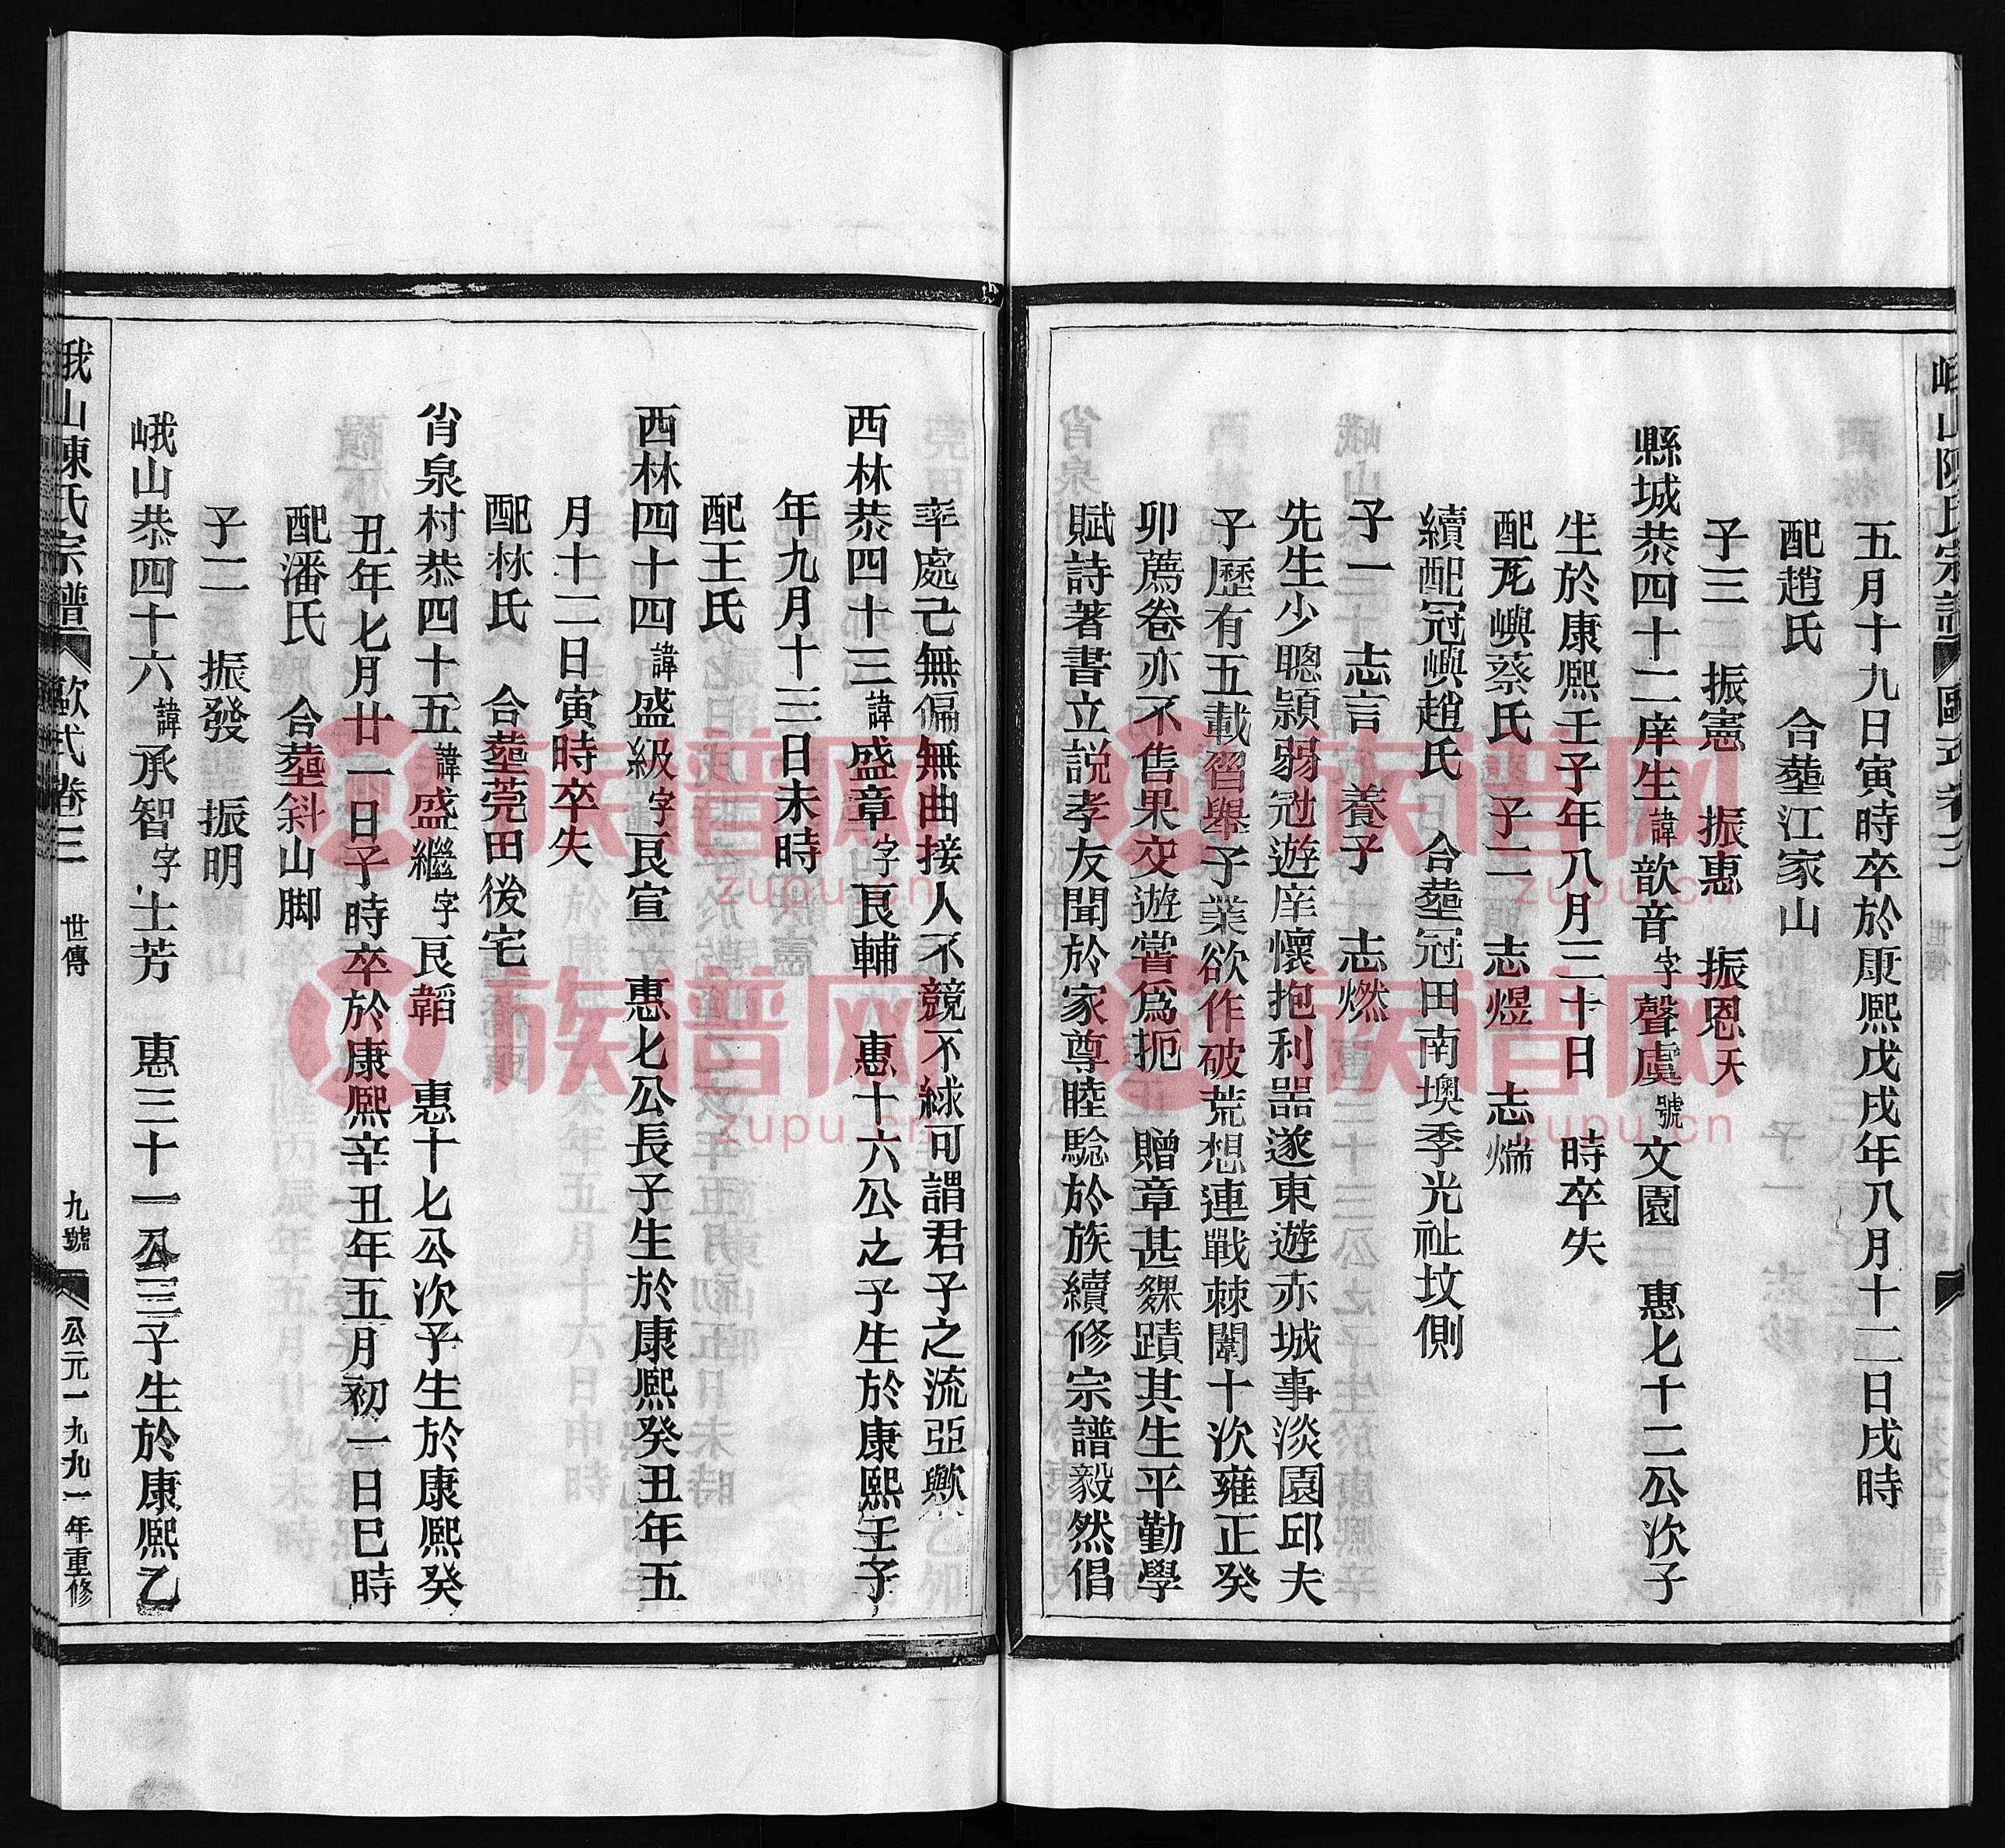 五月十九日寅時卒於康熙戊戌年八月十二日戌時
配趙氏　合塟江家山
子三　振憲　振惠　振恩天
縣城恭四十二庠生諱歆音字聲虞號文園　惠七十二公次子
生於康熙壬子年八月三十日　時卒失
配芃嶼蔡氏　子二　志煜　志煓
續配冠嶼趙氏　合塟冠田南墺季光祉坟側
子一　志言　養子　志燃
先生少聰穎弱冠遊庠懷抱利器遂東遊赤城事淡園邱夫
子歷有五載習舉子業欲作破荒想連戰棘闈十次雍正癸
卯薦卷亦不售果交遊嘗爲扼　贈章甚夥蹟其生平勤學
賦詩著書立説孝友聞於家尊睦騐於族續修宗譜毅然倡
率處己無偏無曲接人不競不絿可謂君子之流亞歟
西林恭四十三諱盛章字良輔　惠十六公之子生於康熙壬子
年九月十三日未時
配王氏
西林四十四諱盛級字良宣　惠七公長子生於康熙癸丑年五
月十二日寅時卒失
配林氏　合塟莞田後宅
肖泉村恭四十五諱盛繼字良韜　惠十七公次子生於康熙癸
丑年七月廿一日子時卒於康熙辛丑年五月初一日巳時
配潘氏　合塟斜山脚
子二　振發　振明
峨山恭四十六諱承智字士芳　惠三十一公三子生於康熙乙
峨山陳氏宗譜　歐式卷三　世傳　九號　公元一九九一年重修
族譜网
zupu.cn
族譜网
zupu.cn
族譜网
zupu.cn
族譜网
zupu.cn